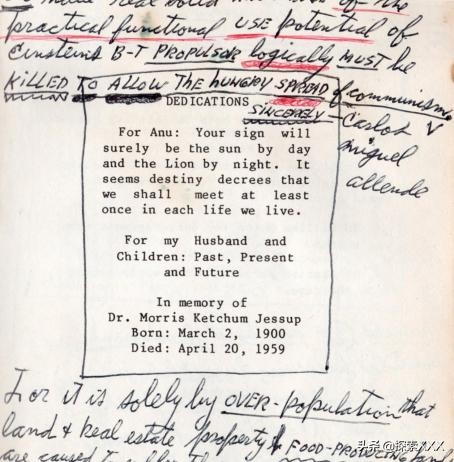 practical functional USE potential of
Einsteins B-T PROPULSOR logically MUST be
KILLED TO ALLOW THE HUNGRY SPREAD of communism
DEDICATIONS
SINCERELY - Carlos
miguel
allende
For Anu: Your sign will
surely be the sun by day
and the Lion by night. It
seems destiny decrees that
we shall meet at least
once in each life we live.
For my Husband and
Children: Past, Present
and Future
In memory of
Dr. Morris Ketchum Jessup
Born: March 2, 1900
Died: April 20, 1959
For it is solely by OVER-population that
land & Real estate property & FOOD-PRODUCING
are caused
头条 @探索XXX